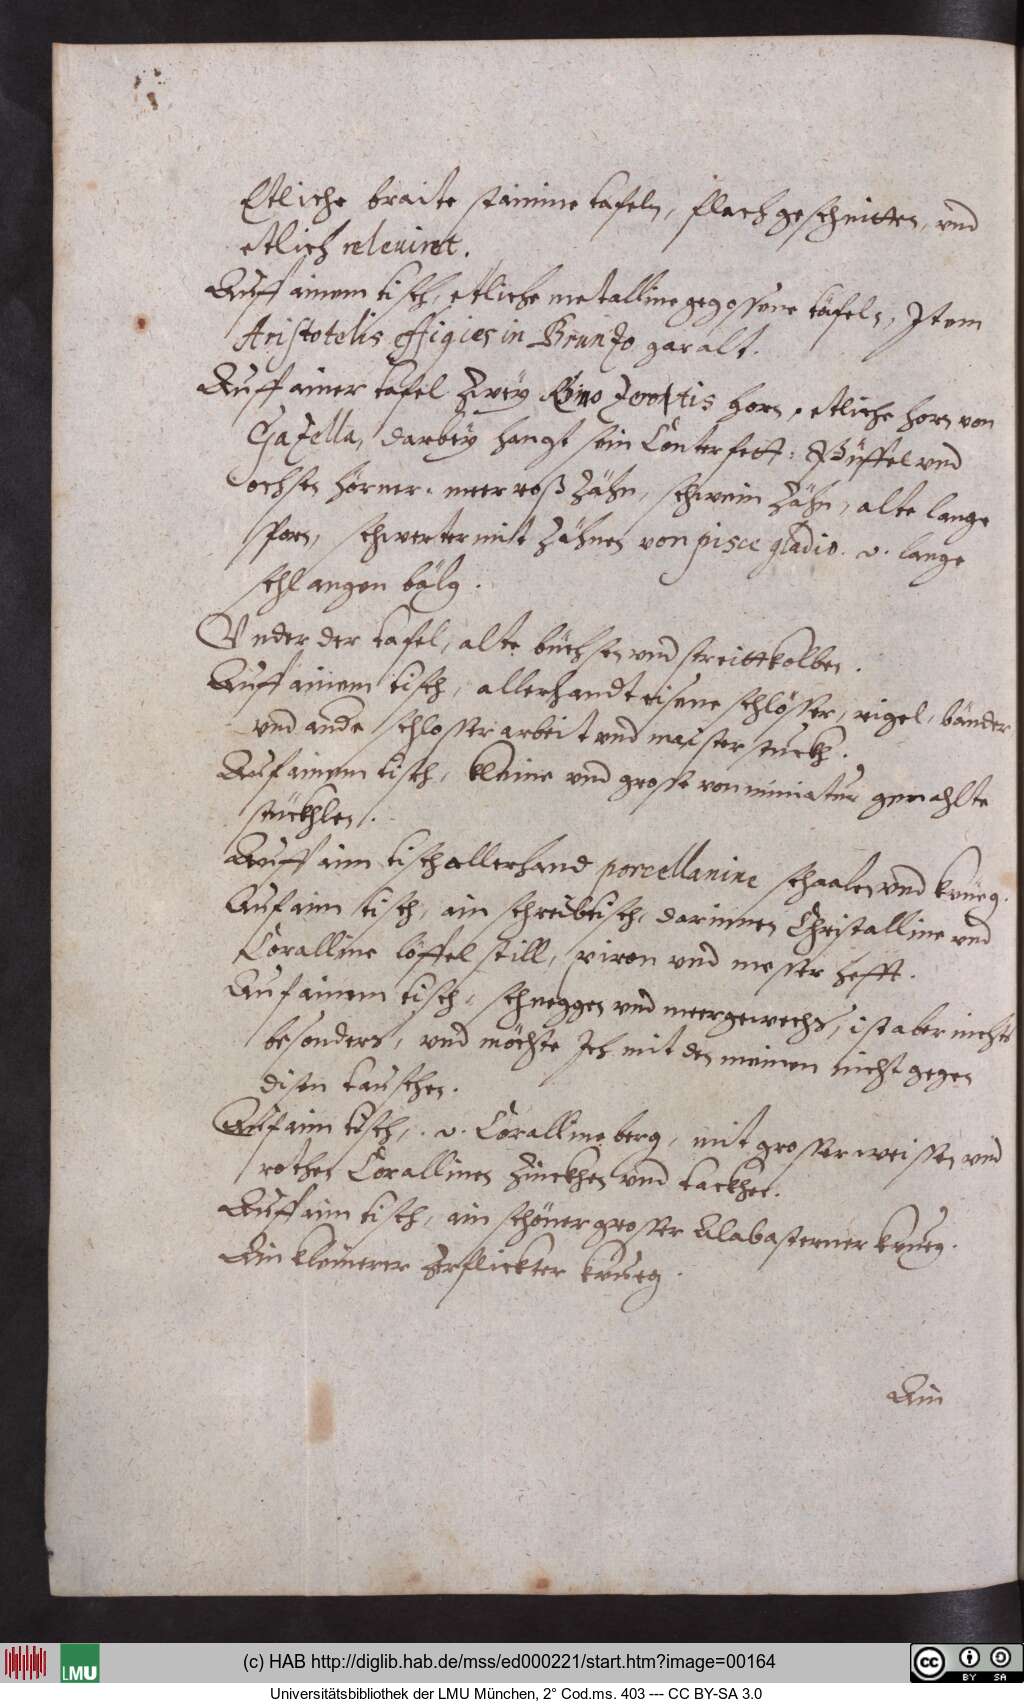 Etliche braite stainine tafeln, flach geschnitten, vnd
etlich releuirt.
Auff ainem tisch, etliche metalline gegossene täfeln, Item
Aristotelis effigies in Brunzo gar alt.
Auff ainer tafel zwey horn, etliche horn von
Gazella, darbey hangt sein Conterfett: Püffel vnd
ochsen hörner. meerroß zähn, schwein zähn, alte lange
sporn, schwerter mit zähnen von pisce gladio. v. lange
schlangen bälg.
Vnder der tafel, alte büchsen vnd streittkolben.
Auff ainem tisch, allerhandt eisene schlösser, rigel, bänder
vnd ande schlosser arbeit vnd maister stuckh.
Auf ainem tisch, kleine vnd grosse von miniatur gemahlte
stückhlen.
Auff aim tisch allerhand porcellanine schaalen vnd krüeg.
Auf aim tisch, ain schreibtisch, darinnen Christalline vnd
Coralline löffel still, piron vnd messer hefft.
Auf ainem tisch, schneggen vnd meergewechs, ist aber nichts
besonders, vnd möchte Ich mit den meinen nicht gegen
disen tauschen.
Auf aim tisch, . v. Coralline berg, mit grosser weissen vnd
rothen Corallinen zinckhen vnd
Auff aim tisch, ain schöner grosser Alabasterner krueg.
Ain kleinerer zerflickter krueg.
Ain
(c) HAB http://diglib.hab.de/mss/ed000221/start.htm?image=00164
LMU
CC BY SA
Universitätsbibliothek der LMU München, 2° Cod.ms. 403 --- CC BY-SA 3.0